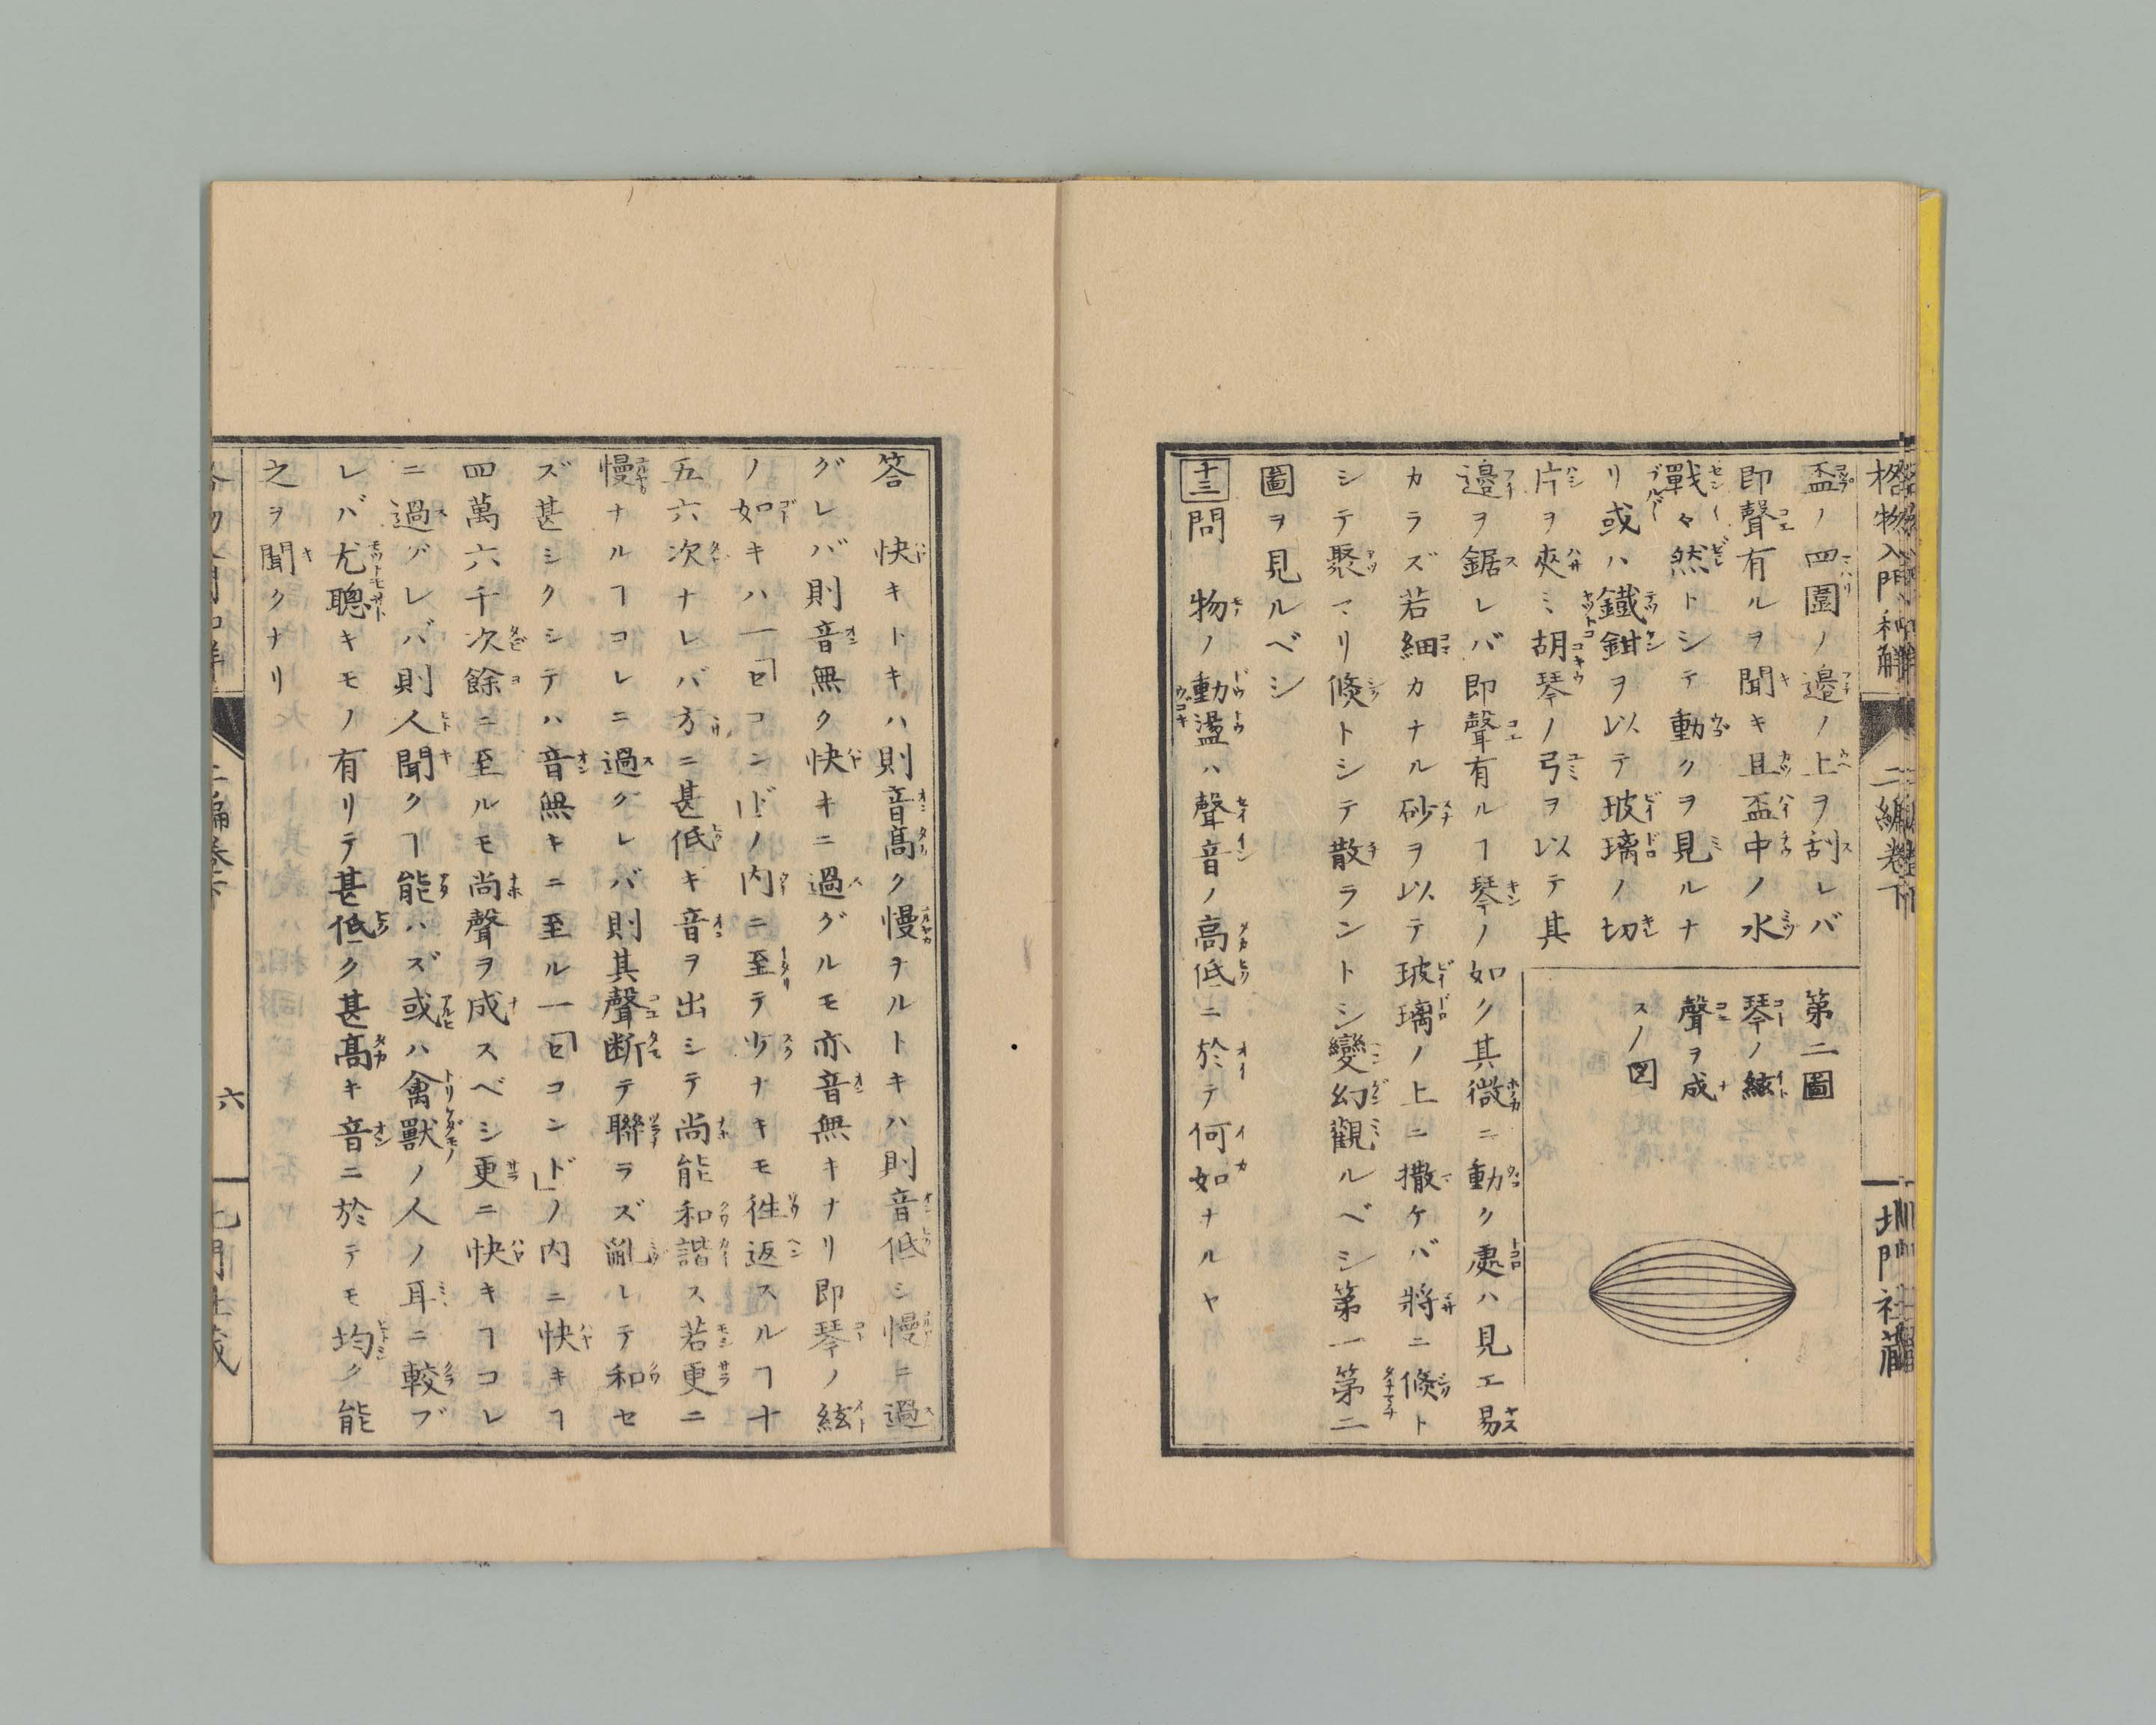 格物入門和解 二編卷下 北門社藏
盃ノ四圍ノ邊ノ上ヲ刮レバ
即聲有ルヲ聞キ且盃中ノ水
戰々然トシテ動クヲ見ルナ
リ或ハ鐵鉗ヲ以テ玻璃ノ切
片ヲ夾ミ胡琴ノ弓ヲ以テ其
邊ヲ鋸レバ即聲有ルヿ琴ノ如ク其微ニ動ク處ハ見エ易
カラズ若細カナル砂ヲ以テ玻璃ノ上ニ撒ケバ將ニ倐ト
シテ聚マリ倐トシテ散ラントシ變幻觀ルベシ第一第二
圖ヲ見ルベシ
十三 問 物ノ動盪ハ聲音ノ高低ニ於テ何如ナルヤ
第二圖
琴ノ絃
聲ヲ成
スノ図
答 快キトキハ則音高ク慢ヲルトキハ則音低シ慢ニ過
グレバ則音無ク快キニ過グルモ亦音無キナリ即琴ノ絃
ノ如キハ一「セコンド」ノ内ニ至テ少ナキモ徃返スルヿ十
五六次ナレバ方ニ甚低キ音ヲ出シテ尚能和諧ス若更ニ
慢ナルヿコレニ過グレバ則其聲断テ聯ラズ亂レテ和セ
ズ甚シクシテハ音無キニ至ル一「セコンド」ノ内ニ快キヿ
四萬六千次餘ニ至ルモ尚聲ヲ成スベシ更ニ快キヿコレ
ニ過バレバ則人聞クヿ能ハズ或ハ禽獸ノ人ノ耳ニ較ブ
レバ尤聰キモノ有リテ甚低ク甚高キ音ニ於テモ均ク能
之ヲ聞クナリ
二編卷下 六